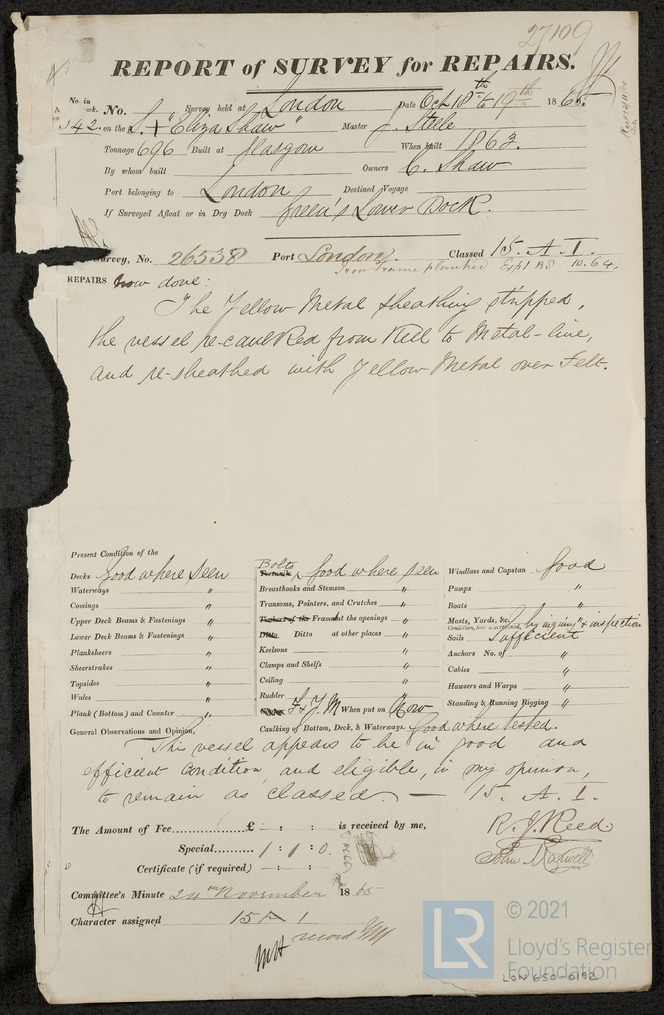 27109
REPORT of SURVEY for REPAIRS.
No. in Book. No. Survey held at London Date Octr 18th & 19th 1865.
542. on the S. "Eliza Shaw" Master J. Steele
Tonnage 696 Built at Glasgow When built 1863.
By whom built Owners C. Shaw
Port belonging to London Destined Voyage
If Surveyed Afloat or in Dry Dock Green's Lower Dock.
Survey, No. 26538 Port London. Classed 15. A. 1.
Iron Frame planked Expl BS 10.64.
REPAIRS now done:
The Yellow Metal sheathing stripped,
the vessel re-caulked from Keel to Metal-line,
and re-sheathed with Yellow Metal over Felt.
Present Condition of the
Decks Good where seen
Waterways "
Comings "
Upper Deck Beams & Fastenings "
Lower Deck Beams & Fastenings "
Planksheers "
Sheerstrakes "
Topsides "
Wales "
Plank (Bottom) and Counter "
Bolts Good where seen
Breasthooks and Stemson "
Transoms, Pointers, and Crutches "
Timber of the Frame at the openings "
Ditto Ditto at other places "
Keelsons "
Clamps and Shelfs "
Ceiling "
Rudder "
F & Y.M When put on Now
Windlass and Capstan Good
Pumps "
Boats "
Masts, Yards, &c. " by inquiry & inspection
Condition, how ascertained,
Sails Sufficient
Anchors No. of "
Cables "
Hawsers and Warps "
Standing & Running Rigging "
General Observations and Opinion, Caulking of Bottom, Deck, & Waterways. Good where tested.
This vessel appears to be in good and
efficient condition, and eligible, in my opinion,
to remain as classed. — 15. A. 1.
The Amount of Fee............£ - : - : - is received by me,
Special........... 1 : 1 : 0.
Certificate (if required) - : - : -
R. J. Reed
John Maxwell
Committee's Minute 24th November 1865
Character assigned 15 A 1
© 2021
LR
Lloyd's Register
Foundation
LON 650-0192